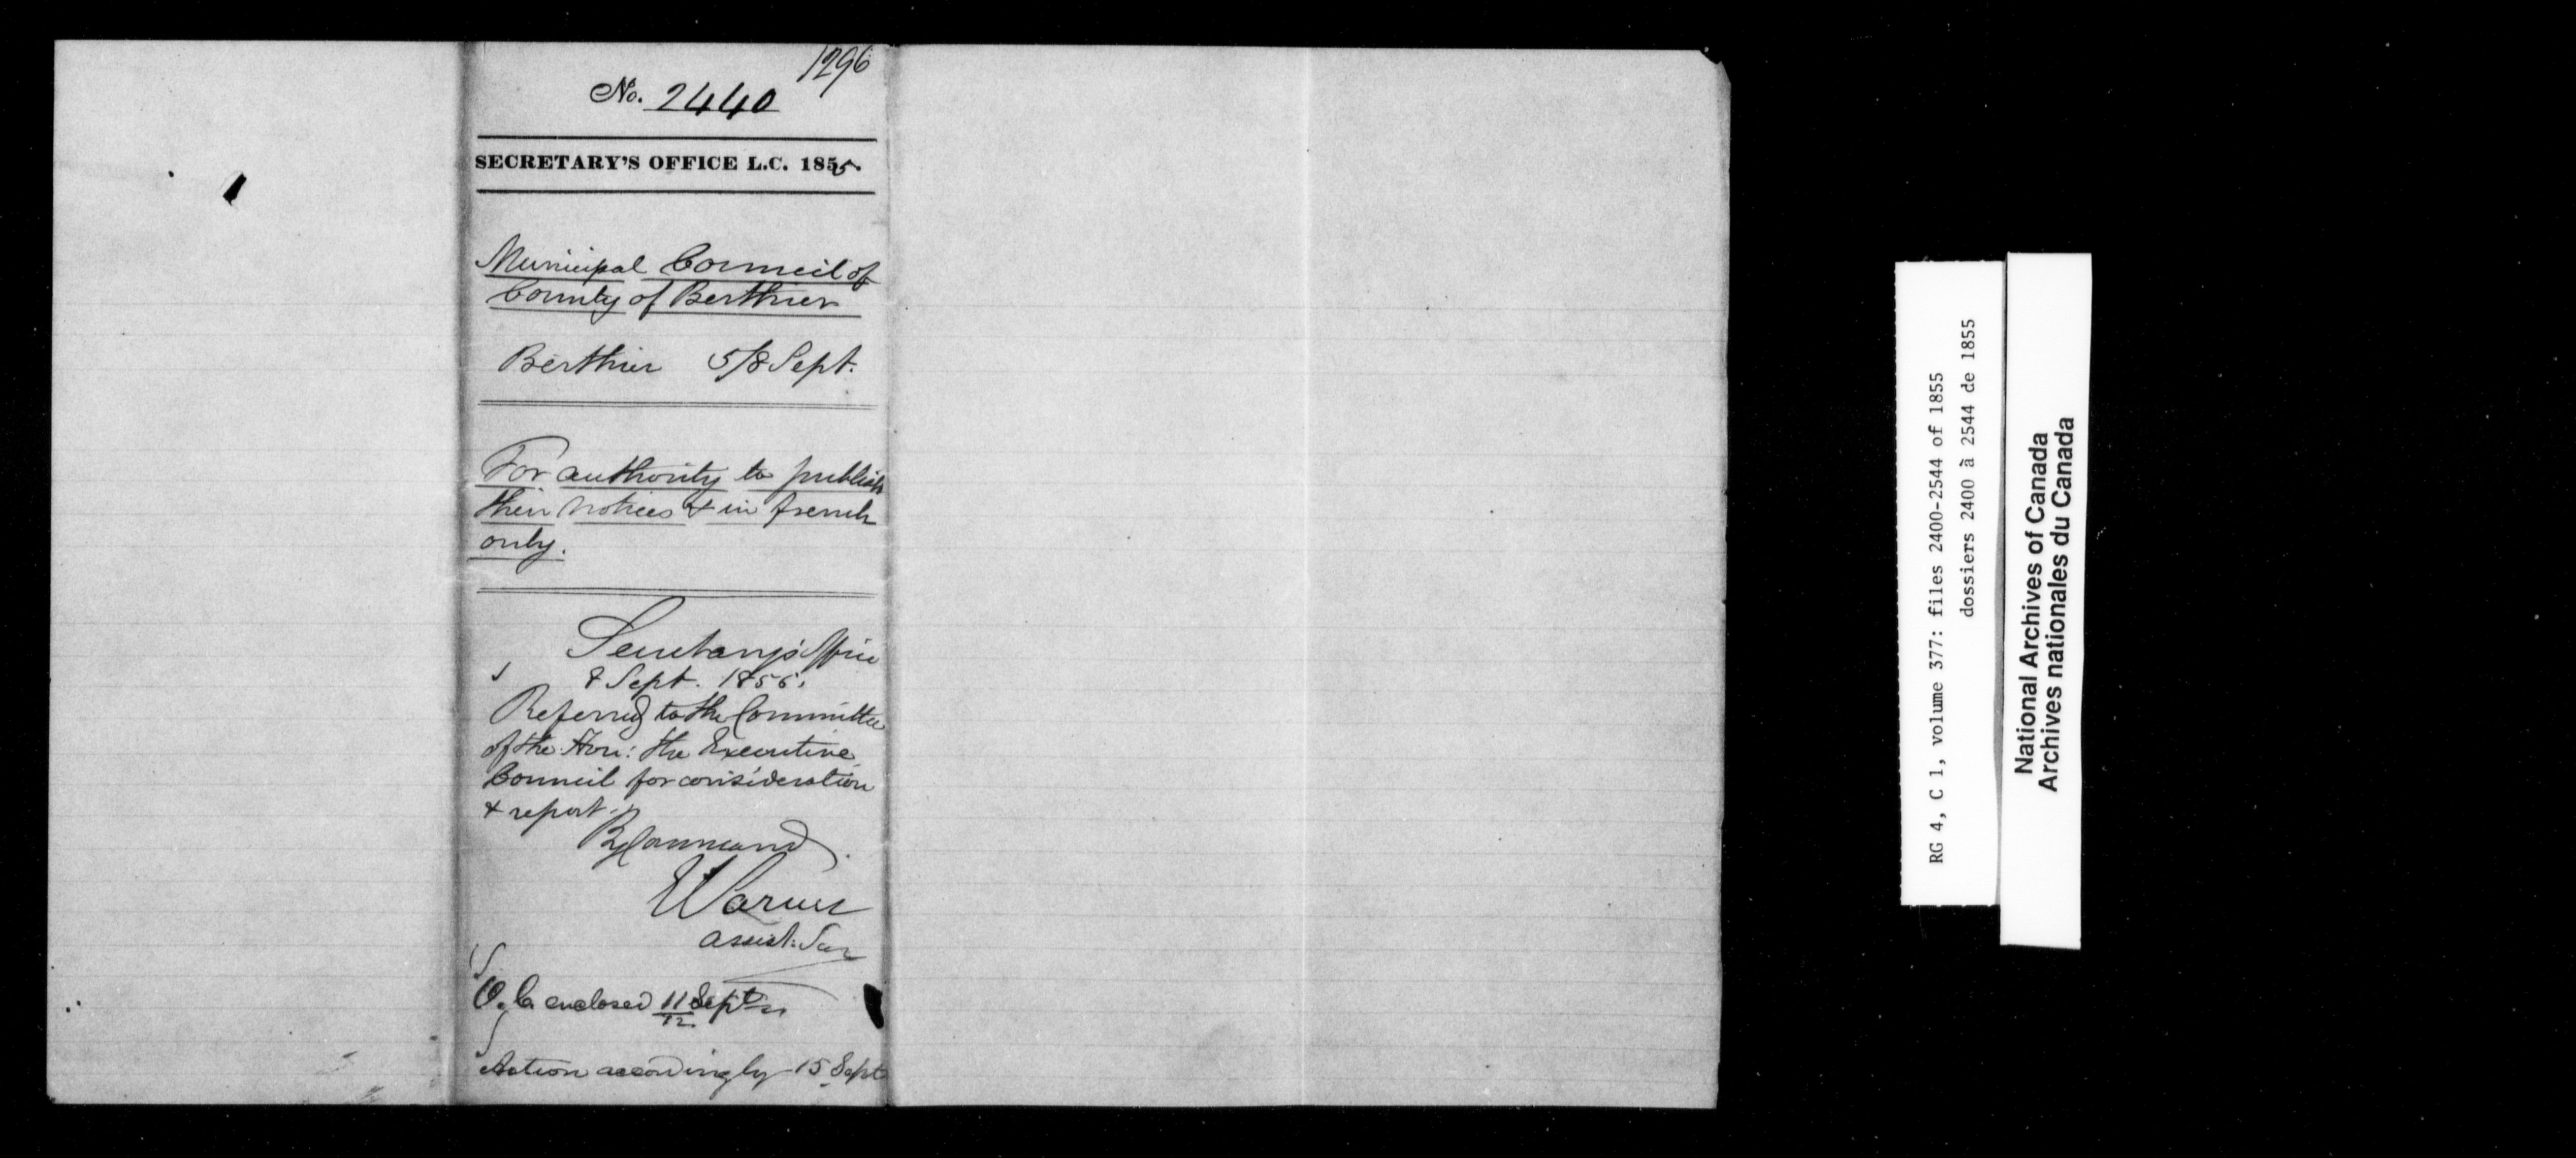 1296
No. 2440
SECRETARY'S OFFICE L.C. 1855.
Municipal Council of
County of Berthier
Berthier 5/8 Sept.
For authority to publish
their notices & in french
only.
Secretary's Office
8 Sept. 1855.
Referred to the Committee
of the Hon: the Executive
Council for consideration
& report.
By Command
assist: Sec
O.C. enclosed 11/12 Sept
Action accordingly 15 Sept
RG 4, C 1, volume 377: files 2400-2544 of 1855
dossiers 2400 à 2544 de 1855
National Archives of Canada
Archives nationales du Canada